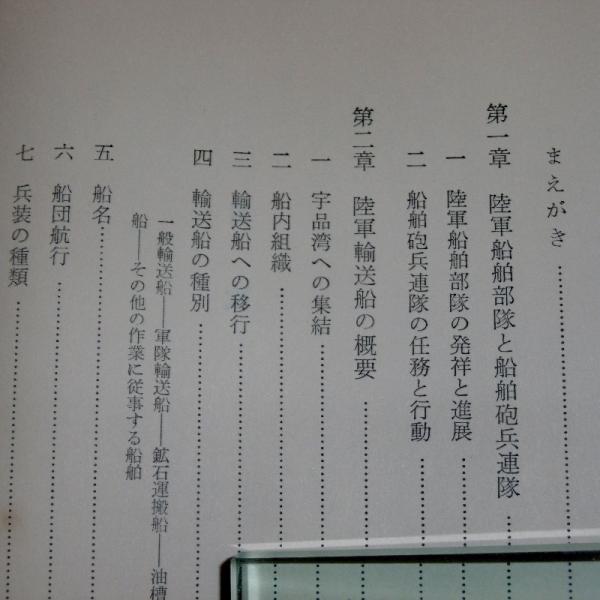 まえがき
第一章 陸軍船舶部隊と船舶砲兵連隊
一 陸軍船舶部隊の発祥と進展
二 船舶砲兵連隊の任務と行動
第二章 陸軍輸送船の概要
一 宇品湾への集結
二 船内組織
三 輸送船への移行
四 輸送船の種別
一般輸送船――軍隊輸送船――鉱石運搬船――油槽
船――その他の作業に従事する船舶
五 船名
六 船団航行
七 兵装の種類